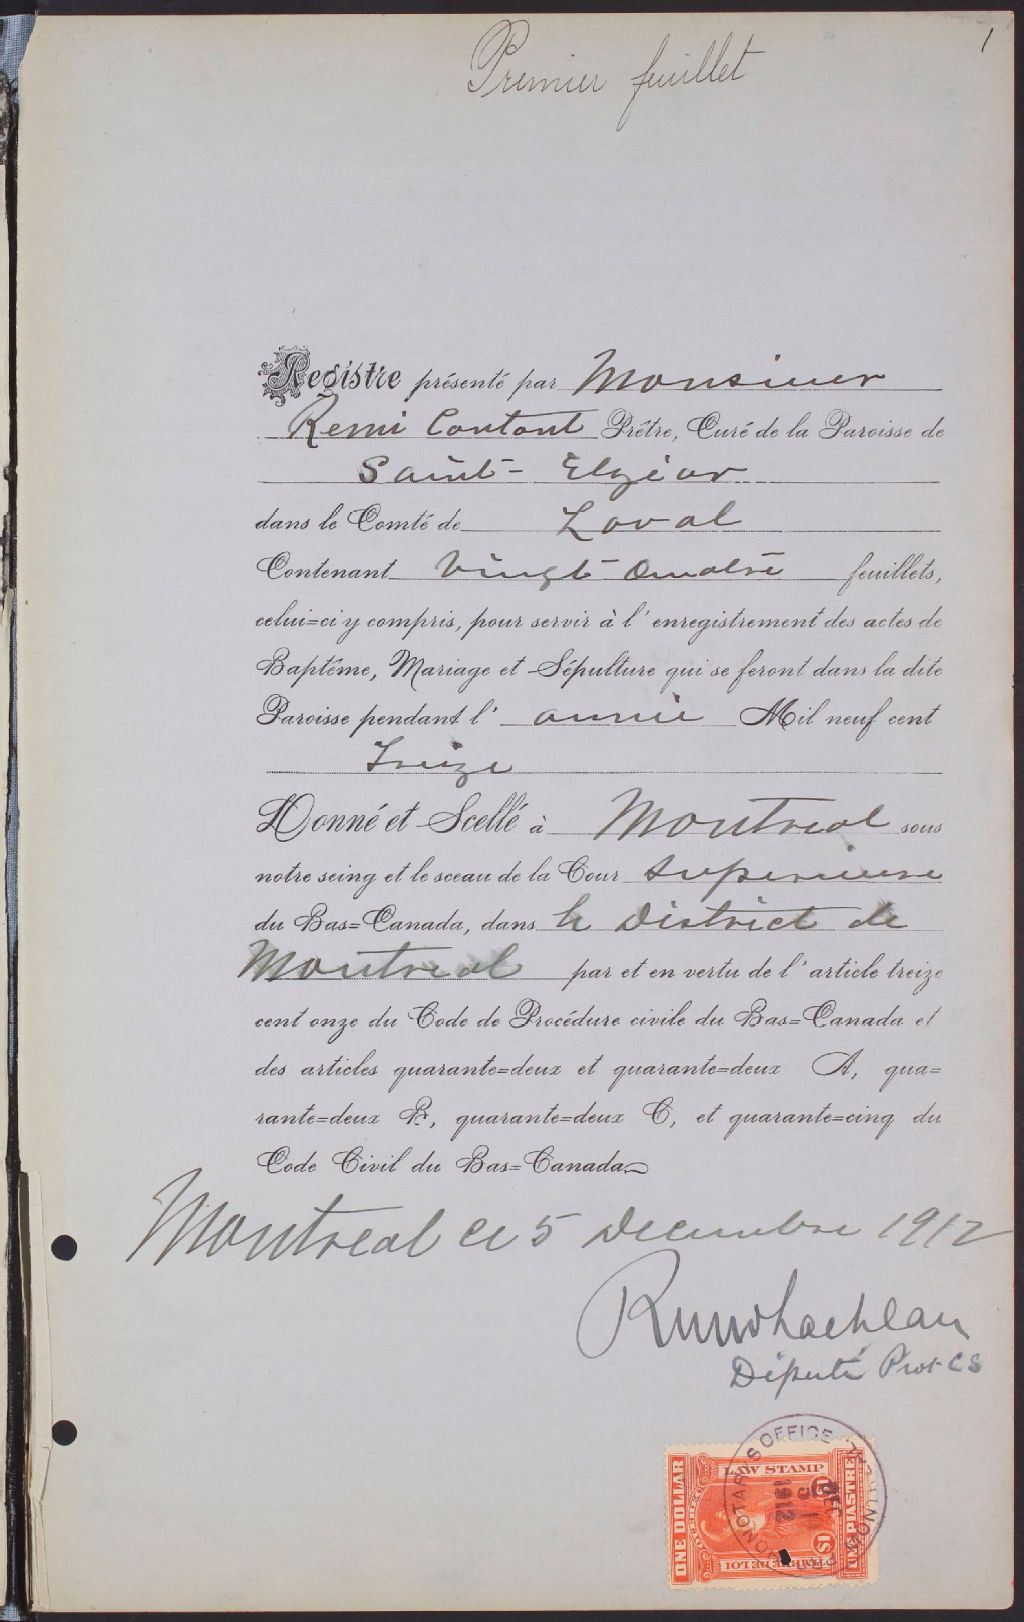 1
Premier feuillet
Registre présenté par Monsieur
Remi Contant Prêtre, Curé de la Paroisse de
Saint-Elzéar
dans le Comté de Laval
Contenant Vingt-Quatre feuillets,
celui=ci y compris, pour servir à l'enregistrement des actes de
Baptême, Mariage et Sépulture qui se feront dans la dite
Paroisse pendant l'année Mil neuf cent
Treize
Donné et Scellé à Montreal sous
notre seing et le sceau de la Cour Superieure
du Bas=Canada, dans le District de
Montreal par et en vertu de l'article treize
cent onze du Code de Procédure civile du Bas=Canada et
des articles quarante=deux et quarante=deux A, qua=
rante=deux B, quarante=deux C, et quarante=cinq du
Code Civil du Bas=Canada
Montreal ce 5 Decembre 1912
Député Prot CS
LAW STAMP
ONE DOLLAR
UNE PIASTRE
TIMBRE DE LOI
$1
QUEBEC
OFFICE
DEC
5
1912